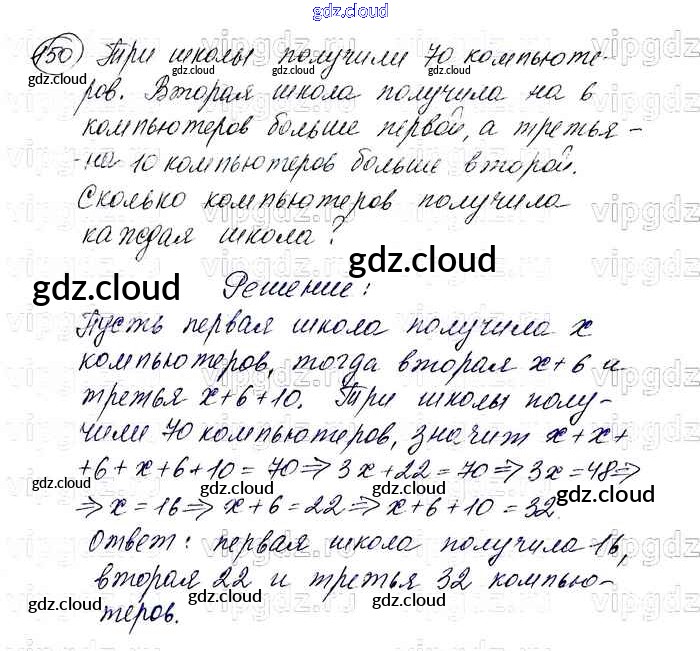 gdz.cloud
150) Три школы получили 70 компьюте-
ров. Вторая школа получила на 6
компьютеров больше первой, а третья -
- на 10 компьютеров больше второй.
Сколько компьютеров получила
каждая школа?
gdz.cloud
gdz.cloud
Решение:
Пусть первая школа получила x
компьютеров, тогда вторая x+6 и
третья x+6+10. Три школы полу-
чили 70 компьютеров, значит x+x+
+6+x+6+10=70⇒3x+22=70⇒3x=48⇒
⇒x=16⇒x+6=22⇒x+6+10=32.
Ответ: первая школа получила 16,
вторая 22 и третья 32 компью-
теров.